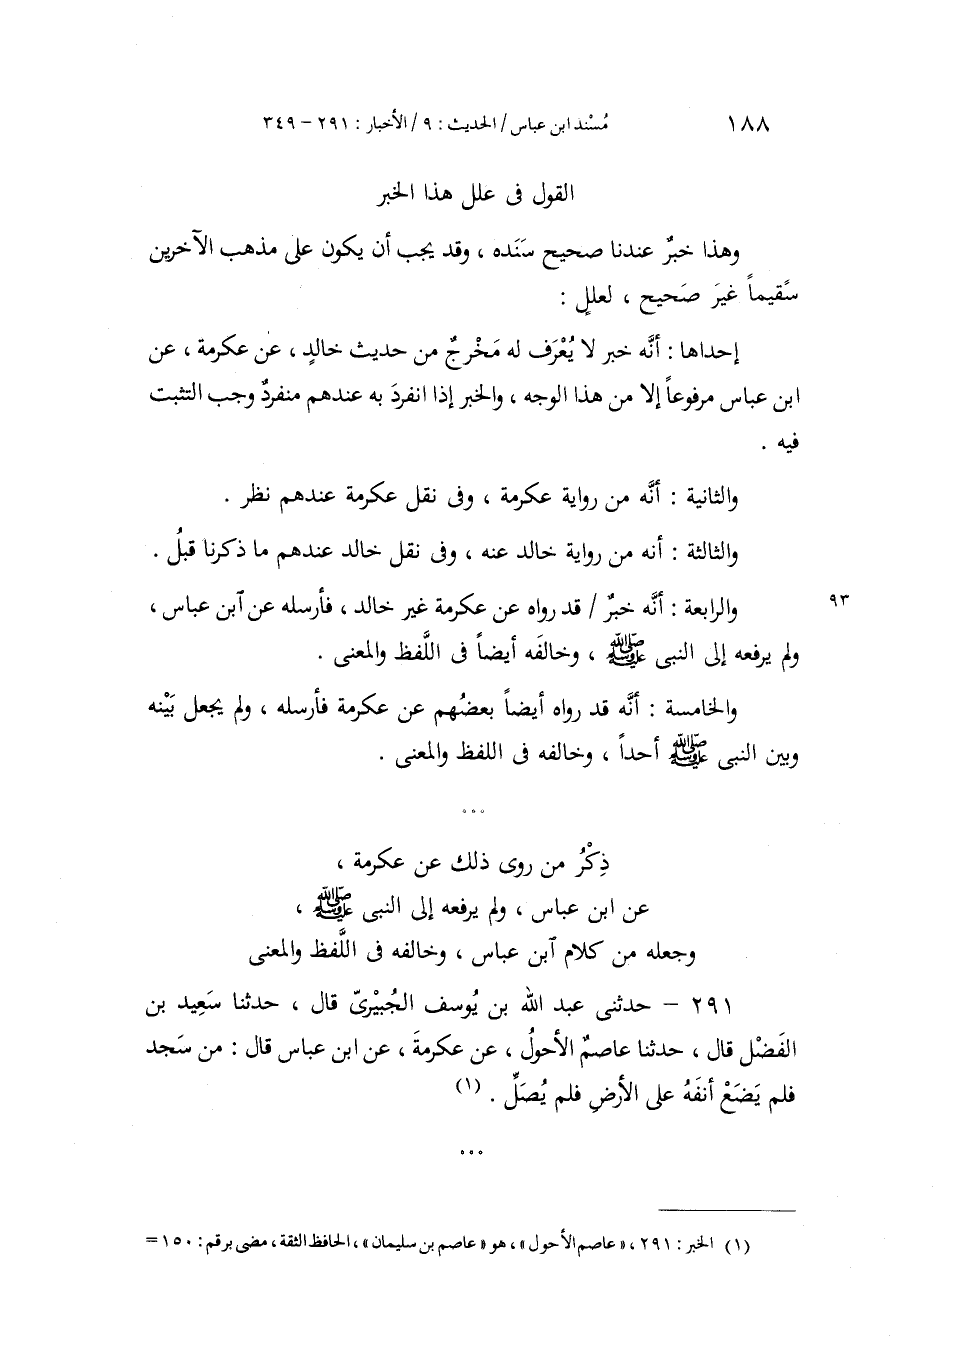 ١٨٨ مُسْند ابن عباس / الحديث : ٩ / الأخبار : ٢٩١ – ٣٤٩
القول فى علل هذا الخبر
وهذا خبرٌ عندنا صحيح سَنَده ، وقد يجب أن يكون على مذهب الآخرين
سَقيماً غيرَ صَحيح ، لعللٍ :
إحداها : أنَّه خبر لا يُعْرَف له مَخْرجٌ من حديث خالدٍ ، عن عكرمة ، عن
ابن عباس مرفوعاً إلا من هذا الوجه ، والخبر إذا انفردَ به عندهم منفردٌ وجب التثبت
فيه .
والثانية : أنَّه من رواية عكرمة ، وفى نقل عكرمة عندهم نظر .
والثالثة : أنه من رواية خالد عنه ، وفى نقل خالد عندهم ما ذكرنا قبلُ .
والرابعة : أنَّه خبرٌ / قد رواه عن عكرمة غير خالد ، فأرسله عن آبن عباس ، ٩٣
ولم يرفعه إلى النبى ﷺ ، وخالفَه أيضاً فى اللَّفظ والمعنى .
والخامسة : أنَّه قد رواه أيضاً بعضُهم عن عكرمة فأرسله ، ولم يجعل بَيْنه
وبين النبى ﷺ أحداً ، وخالفه فى اللفظ والمعنى .
°°°
ذِكْرُ من روى ذلك عن عكرمة ،
عن ابن عباس ، ولم يرفعه إلى النبى ﷺ ،
وجعله من كلام آبن عباس ، وخالفه فى اللَّفظ والمعنى
٢٩١ – حدثنى عبد الله بن يُوسف الجُبيْرىّ قال ، حدثنا سَعِيد بن
الفَضْل قال ، حدثنا عاصمٌ الأحولُ ، عن عكرمةَ ، عن ابن عباس قال : من سَجد
فلم يَضَعْ أنفَهُ على الأرضِ فلم يُصَلِّ . (١)
°°°
(١) الخبر : ٢٩١ ، « عاصم الأحول » ، هو « عاصم بن سليمان » ، الحافظ الثقة ، مضى برقم : ١٥٠ =